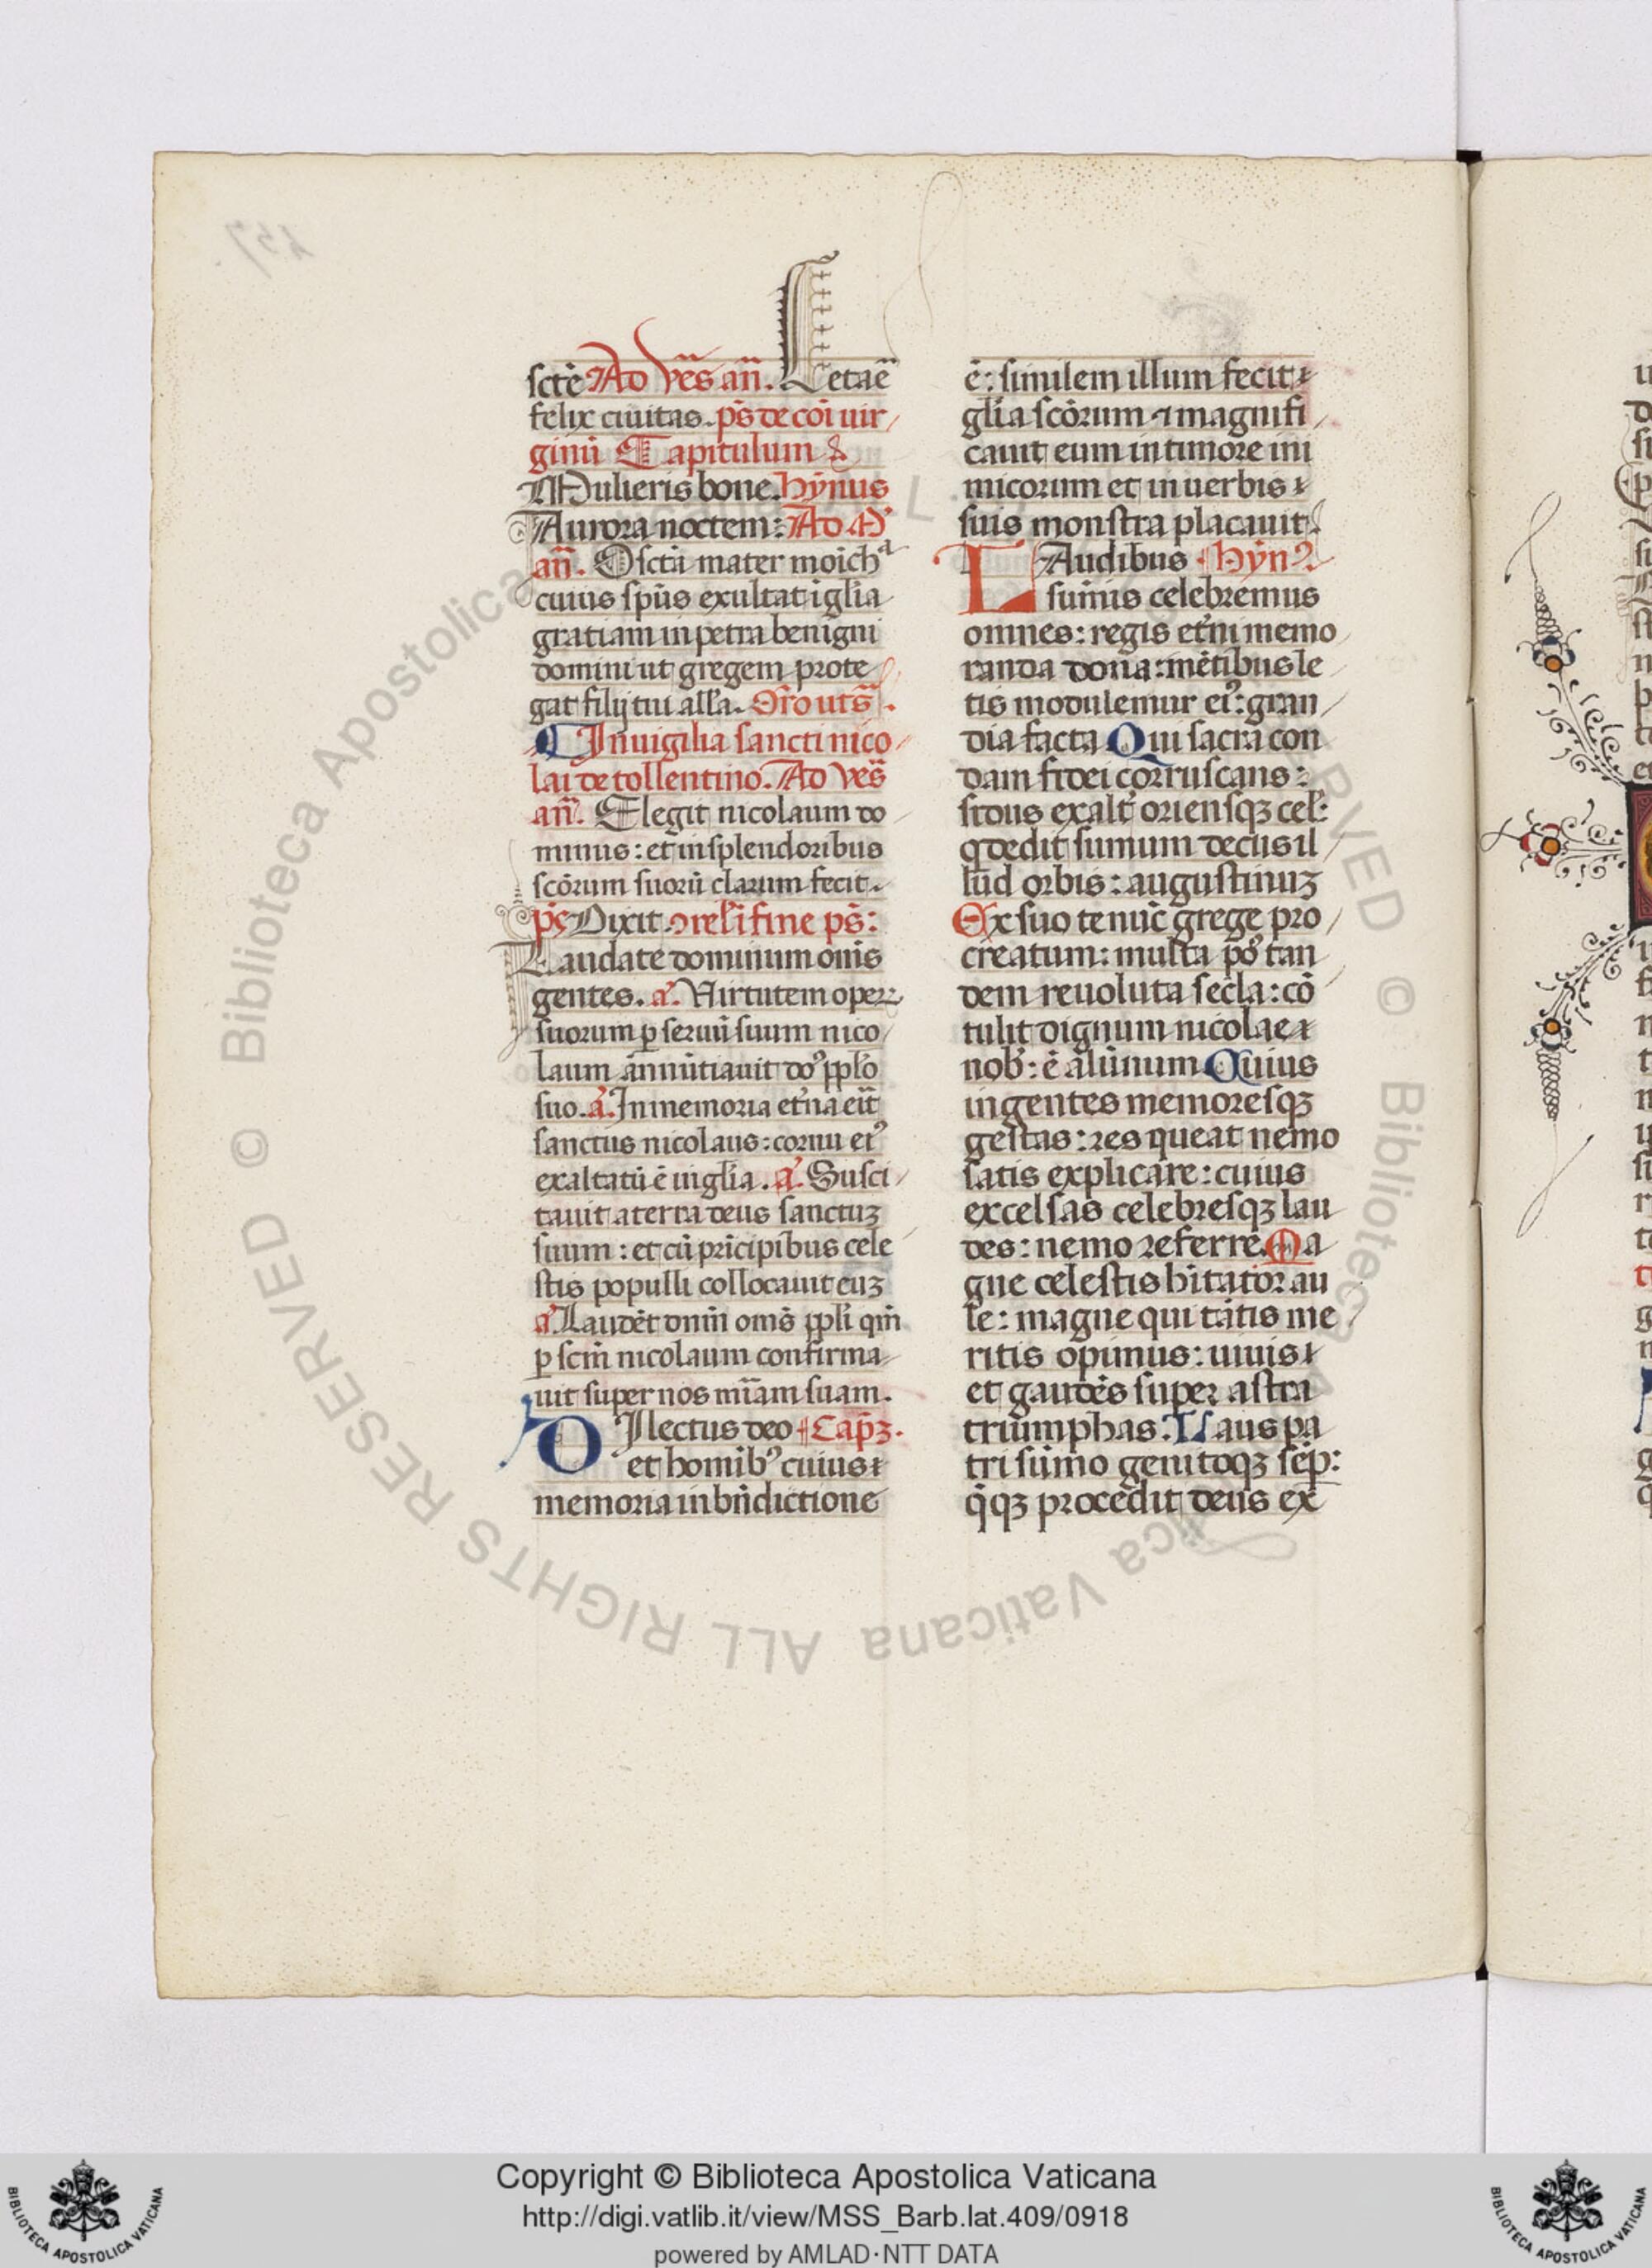 sctē Ad ves̄ an̄. Letaē
felix ciuitas. ps̄ de cōi uir
ginū Capitulum
Mulieris bone. Hȳnus
Aurora noctem: Ad M̄
an̄. O sctā mater
cuius sp̄us exultat i gl̄ia
gratiam in petra benigni
domini ut gregem prote
gat filij tui all̄a. Or̄o ut s̄.
In uigilia sancti nico
lai de tollentino. Ad ves̄
an̄. Elegit nicolaum do
minus: et in splendoribus
scōrum suorū clarum fecit.
ps̄ Dixit i fine ps̄:
Laudate dominum om̄s
gentes. a᷒. Virtutem oper
suorum ꝑ seruū suum nico
laum ānūtiauit do᷒ pp̄lo
suo. ā. In memoria et̄na erit
sanctus nicolaus: cornu ei᷒
exaltatū ē in gl̄ia. a᷒. Susci
tauit a terra deus sanctuꝫ
suum: et cū prīcipibus cele
stis populli collocauit euꝫ
a᷒ Laudēt dn̄m om̄s pp̄li qm̄
ꝑ scm̄ nicolaum confirma
uit super nos mīam suam.
DIlectus deo Cap̄ꝫ.
et homib᷒ cuius
memoria in bn̄dictione
ē: similem illum fecit
gl̄ia scōrum ⁊ magnifi
cauit eum in timore ini
micorum et in uerbis
suis monstra placauit.
LAudibus Hȳn
sum̄is celebremus
omnes: regis et̄ni memo
randa dona: mētibus le
tis modulemur ei᷒: gran
dia facta Qui sacra con
dam fidei corruscans:
sidus exalt̄ oriensqꝫ cel̄:
q̄ dedit sumum decus il
lud orbis: augustinuꝫ
Ex suo tenūc grege pro
creatum: multa pos̄ tan
dem reuoluta secla: cō
tulit dignum nicolae
nob̄: ē alūnum Cuius
ingentes memoresqꝫ
gestas: res queat nemo
satis explicare: cuius
excelsas celebresqꝫ lau
des: nemo referre. Ma
gne celestis hītator au
le: magne qui tātis me
ritis opimus: uiuis
et gaudēs super astra
triumphas. Laus pa
tri sūmo genitoqꝫ sēp:
q̄qꝫ procedit deus ex
© Biblioteca Apostolica Vaticana ALL RIGHTS RESERVED
Copyright © Biblioteca Apostolica Vaticana
http://digi.vatlib.it/view/MSS_Barb.lat.409/0918
powered by AMLAD·NTT DATA
BIBLIOTECA APOSTOLICA VATICANA
BIBLIOTECA APOSTOLICA VATICANA